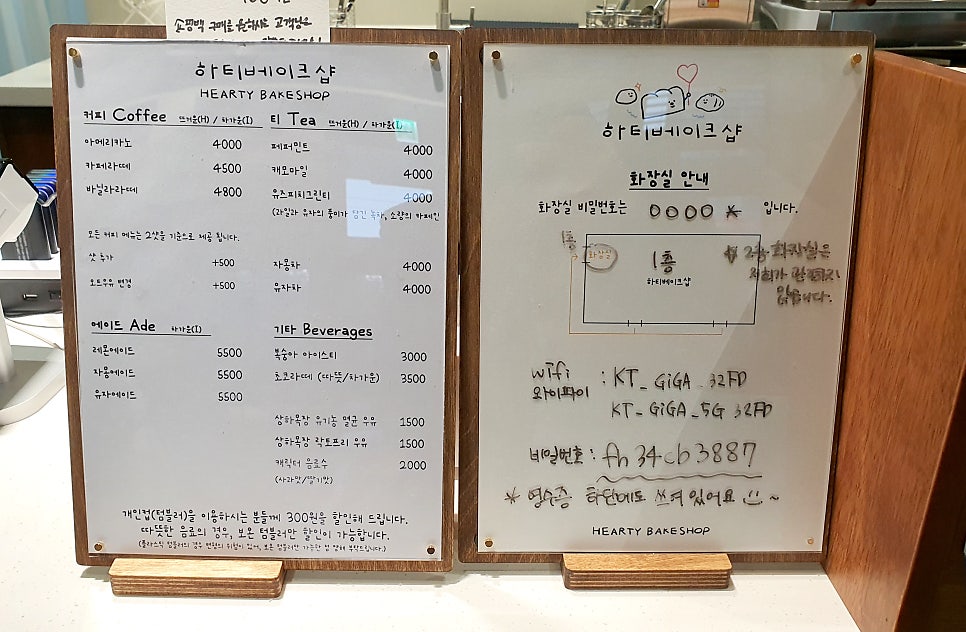 쇼핑백 구매를 원하시는 고객님은
하티베이크샵
HEARTY BAKESHOP
커피 Coffee 뜨거운(H) / 차가운(I)
아메리카노 4000
카페라떼 4500
바닐라라떼 4800
모든 커피 메뉴는 2샷을 기준으로 제공 됩니다.
샷 추가 +500
오트우유 변경 +500
티 Tea 뜨거운(H) / 차가운(I)
페퍼민트 4000
캐모마일 4000
유즈피치그린티 4000
(라임과 유자의 풍미가 담긴 녹차, 소량의 카페인
자몽차 4000
유자차 4000
에이드 Ade 차가운(I)
레몬에이드 5500
자몽에이드 5500
유자에이드 5500
기타 Beverages
복숭아 아이스티 3000
초코라떼 (따뜻/차가운) 3500
상하목장 유기농 멸균 우유 1500
상하목장 락토프리 우유 1500
캐릭터 음료수 2000
(사과맛/딸기맛)
개인컵(텀블러)을 이용하시는 분들께 300원을 할인해 드립니다.
따뜻한 음료의 경우, 보온 텀블러만 할인이 가능합니다.
(플라스틱 텀블러의 경우 변형의 위험이 있어, 보온 텀블러만 가능한 점 양해 부탁드립니다.)
하티베이크샵
화장실 안내
화장실 비밀번호는 0000* 입니다.
1층
화장실
1층
하티베이크샵
* 2층 화장실은
저희가 관리하지
않습니다.
wifi
와이파이 : KT_GiGA_32FD
KT_GiGA_5G_32FD
비밀번호 : fh34cb3887
* 영수증 하단에도 쓰여있어요 ~
HEARTY BAKESHOP